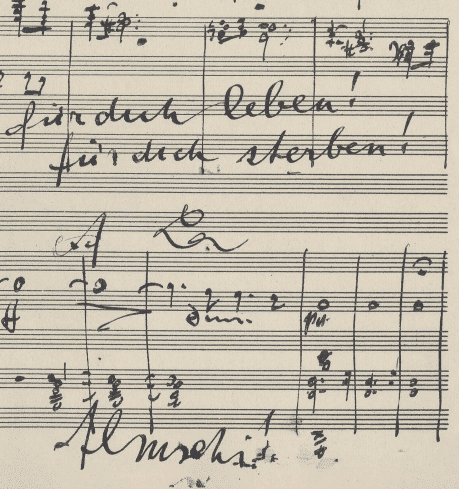 für dich leben!
für dich sterben!
Almschi!